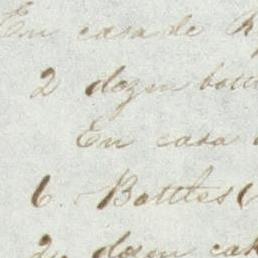 En casa de
2 dozen bott
En casa
6 Bottles
2 dozen cak